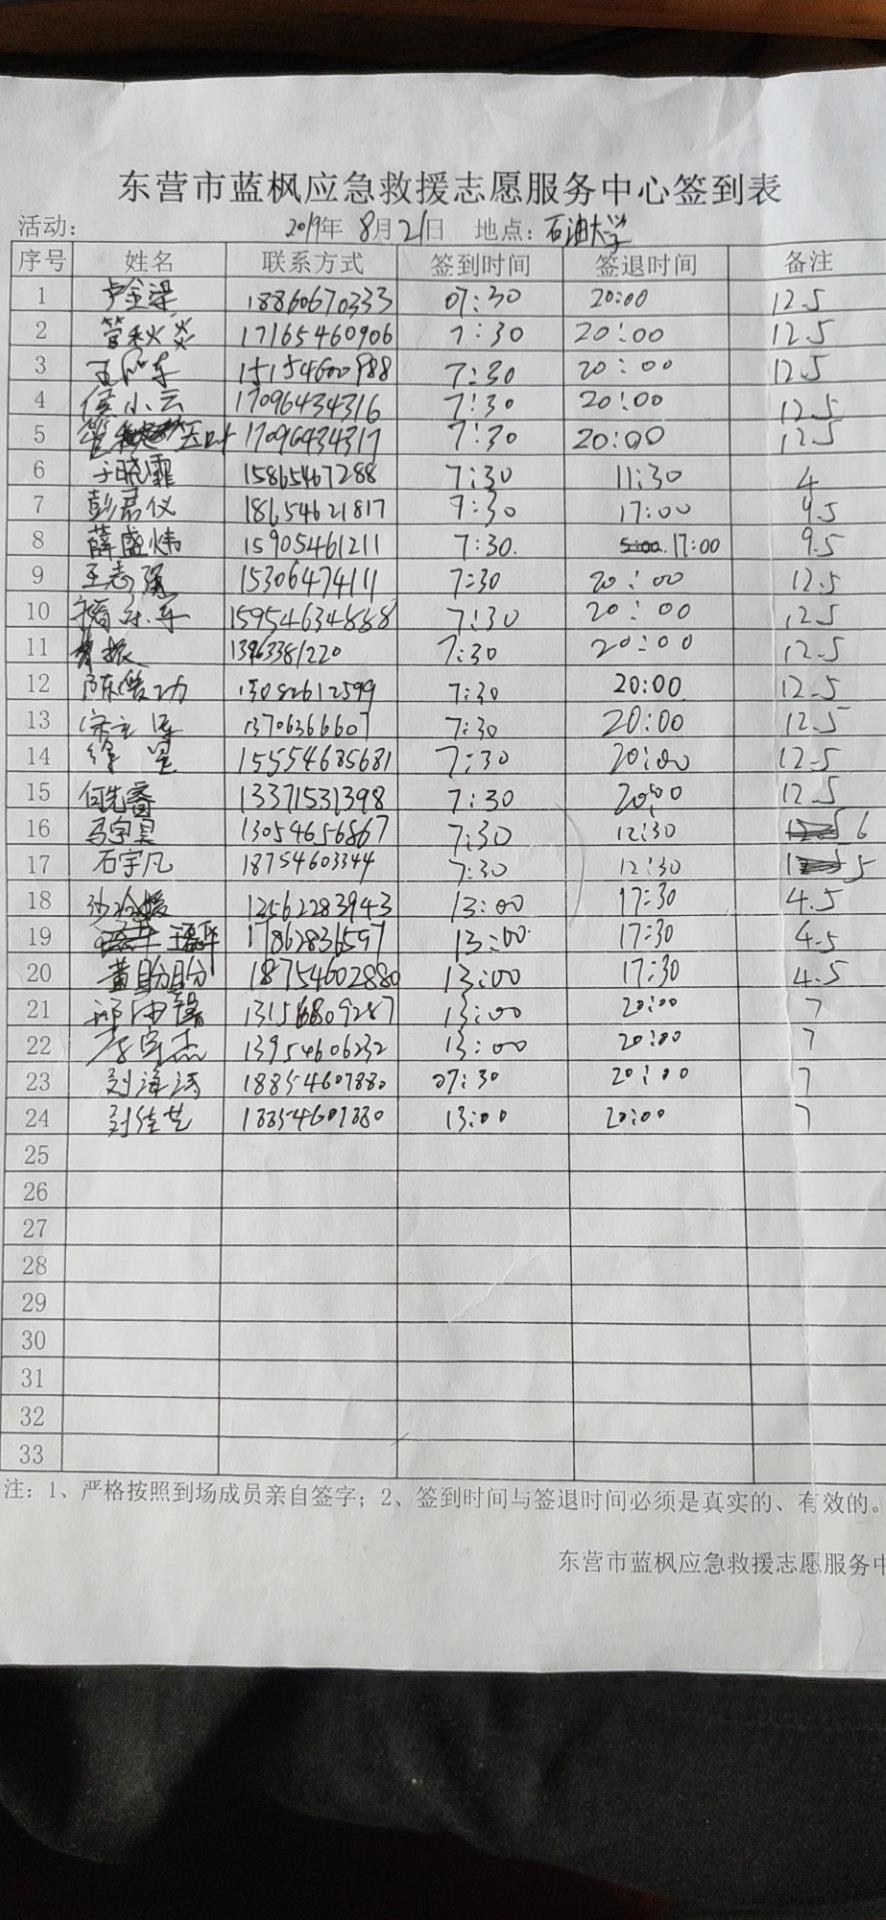 东营市蓝枫应急救援志愿服务中心签到表
活动: 2019年 8月21日 地点: 石油大学
序号 姓名 联系方式 签到时间 签退时间 备注
1 卢金梁 18860670333 07:30 20:00 12.5
2 管秋炎 17165460906 7:30 20:00 12.5
3 15154600988 7:30 20:00 12.5
4 侯小云 17096434316 7:30 20:00 12.5
5 17096434317 7:30 20:00 12.5
6 于晓霏 15865467288 7:30 11:30 4
7 彭君仪 18654621817 7:30 17:00 9.5
8 薛盛炜 15905461211 7:30. 17:00 9.5
9 王志强 15306474111 7:30 20:00 12.5
10 15954634888 7:30 20:00 12.5
11 13963381220 7:30 20:00 12.5
12 陈俊功 13082612599 7:30 20:00 12.5
13 13706366607 7:30 20:00 12.5
14 徐星 15554685681 7:30 20:00 12.5
15 何先睿 13371531398 7:30 20:00 12.5
16 马宇昊 13054656867 7:30 12:30 6
17 石宇凡 18754603344 7:30 12:30 5
18 13562283943 13:00 17:30 4.5
19 17862836557 13:00 17:30 4.5
20 黄盼盼 18754602880 13:00 17:30 4.5
21 13156809287 13:00 20:00 7
22 李宗杰 13954606232 13:00 20:00 7
23 刘泽涛 18854607880 07:30 20:00 7
24 刘佳艺 18854607880 13:00 20:00 7
25
26
27
28
29
30
31
32
33
注: 1、严格按照到场成员亲自签字; 2、签到时间与签退时间必须是真实的、有效的。
东营市蓝枫应急救援志愿服务中